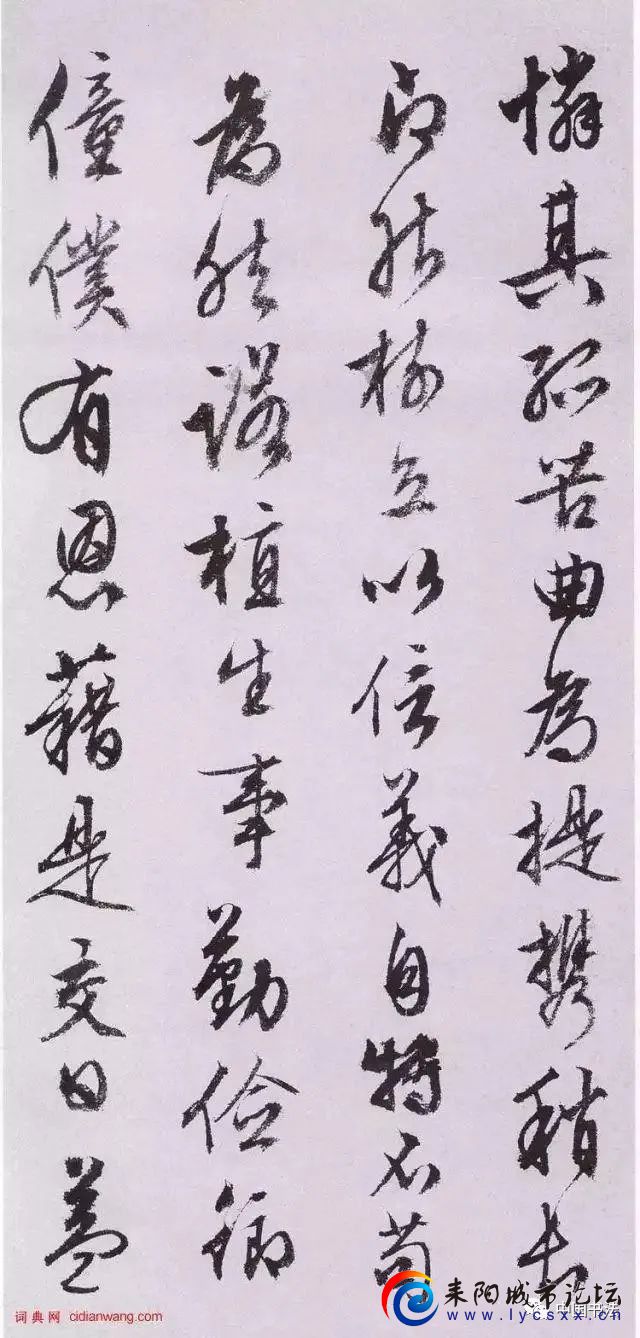 憐其孤苦曲為提攜稍長
即能樹立以信義自特不苟
為然諾植生事勤儉御
僮僕有恩藉是交日益
词典网 cidianwang.com
耒阳城市论坛
www.lycsxx.cn
中国书法